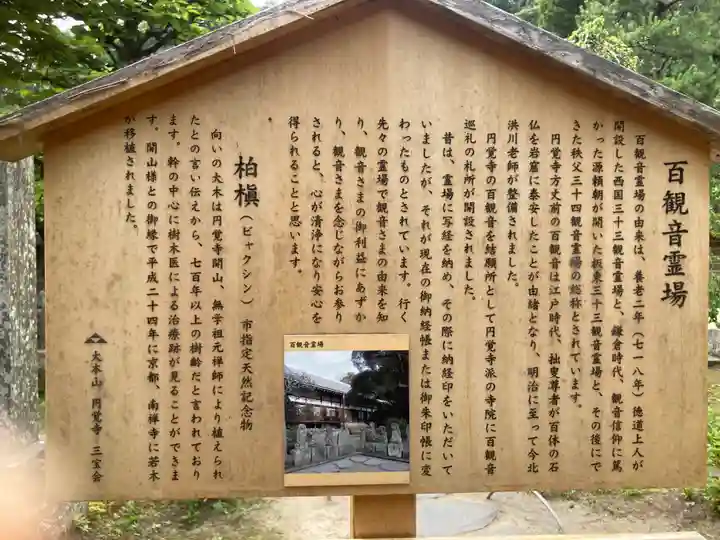 百観音霊場
百観音霊場の由来は、養老二年（七一八年）徳道上人が
開設した西国三十三観音霊場と、鎌倉時代、観音信仰に篤
かった源頼朝が開いた坂東三十三観音霊場と、その後にで
きた秩父三十四観音霊場の総称とされています。
円覚寺方丈前の百観音は江戸時代、拙叟尊者が百体の石
仏を岩窟に奉安したことが由緒となり、明治に至って今北
洪川老師が整備されました。
円覚寺の百観音を結願所として円覚寺派の寺院に百観音
巡礼の札所が開設されました。
昔は、霊場に写経を納め、その際に納経印をいただいて
いましたが、それが現在の御納経帳または御朱印帳に変
わったものとされています。行く
先々の霊場で観音さまの由来を知
り、観音さまの御利益にあずか
り、観音さまを念じながらお参り
されると、心が清浄になり安心を
得られることと思います。
。
柏槇（ビャクシン）市指定天然記念物
向いの大木は円覚寺開山、無学祖元禅師により植えられ
たとの言い伝えから、七百年以上の樹齢だと言われており
ます。幹の中心に樹木医による治療跡が見ることができま
す。開山様との御縁で平成二十四年に京都、南禅寺に若木
が移植されました。
大本山 円覚寺 三宝会
百観音霊場